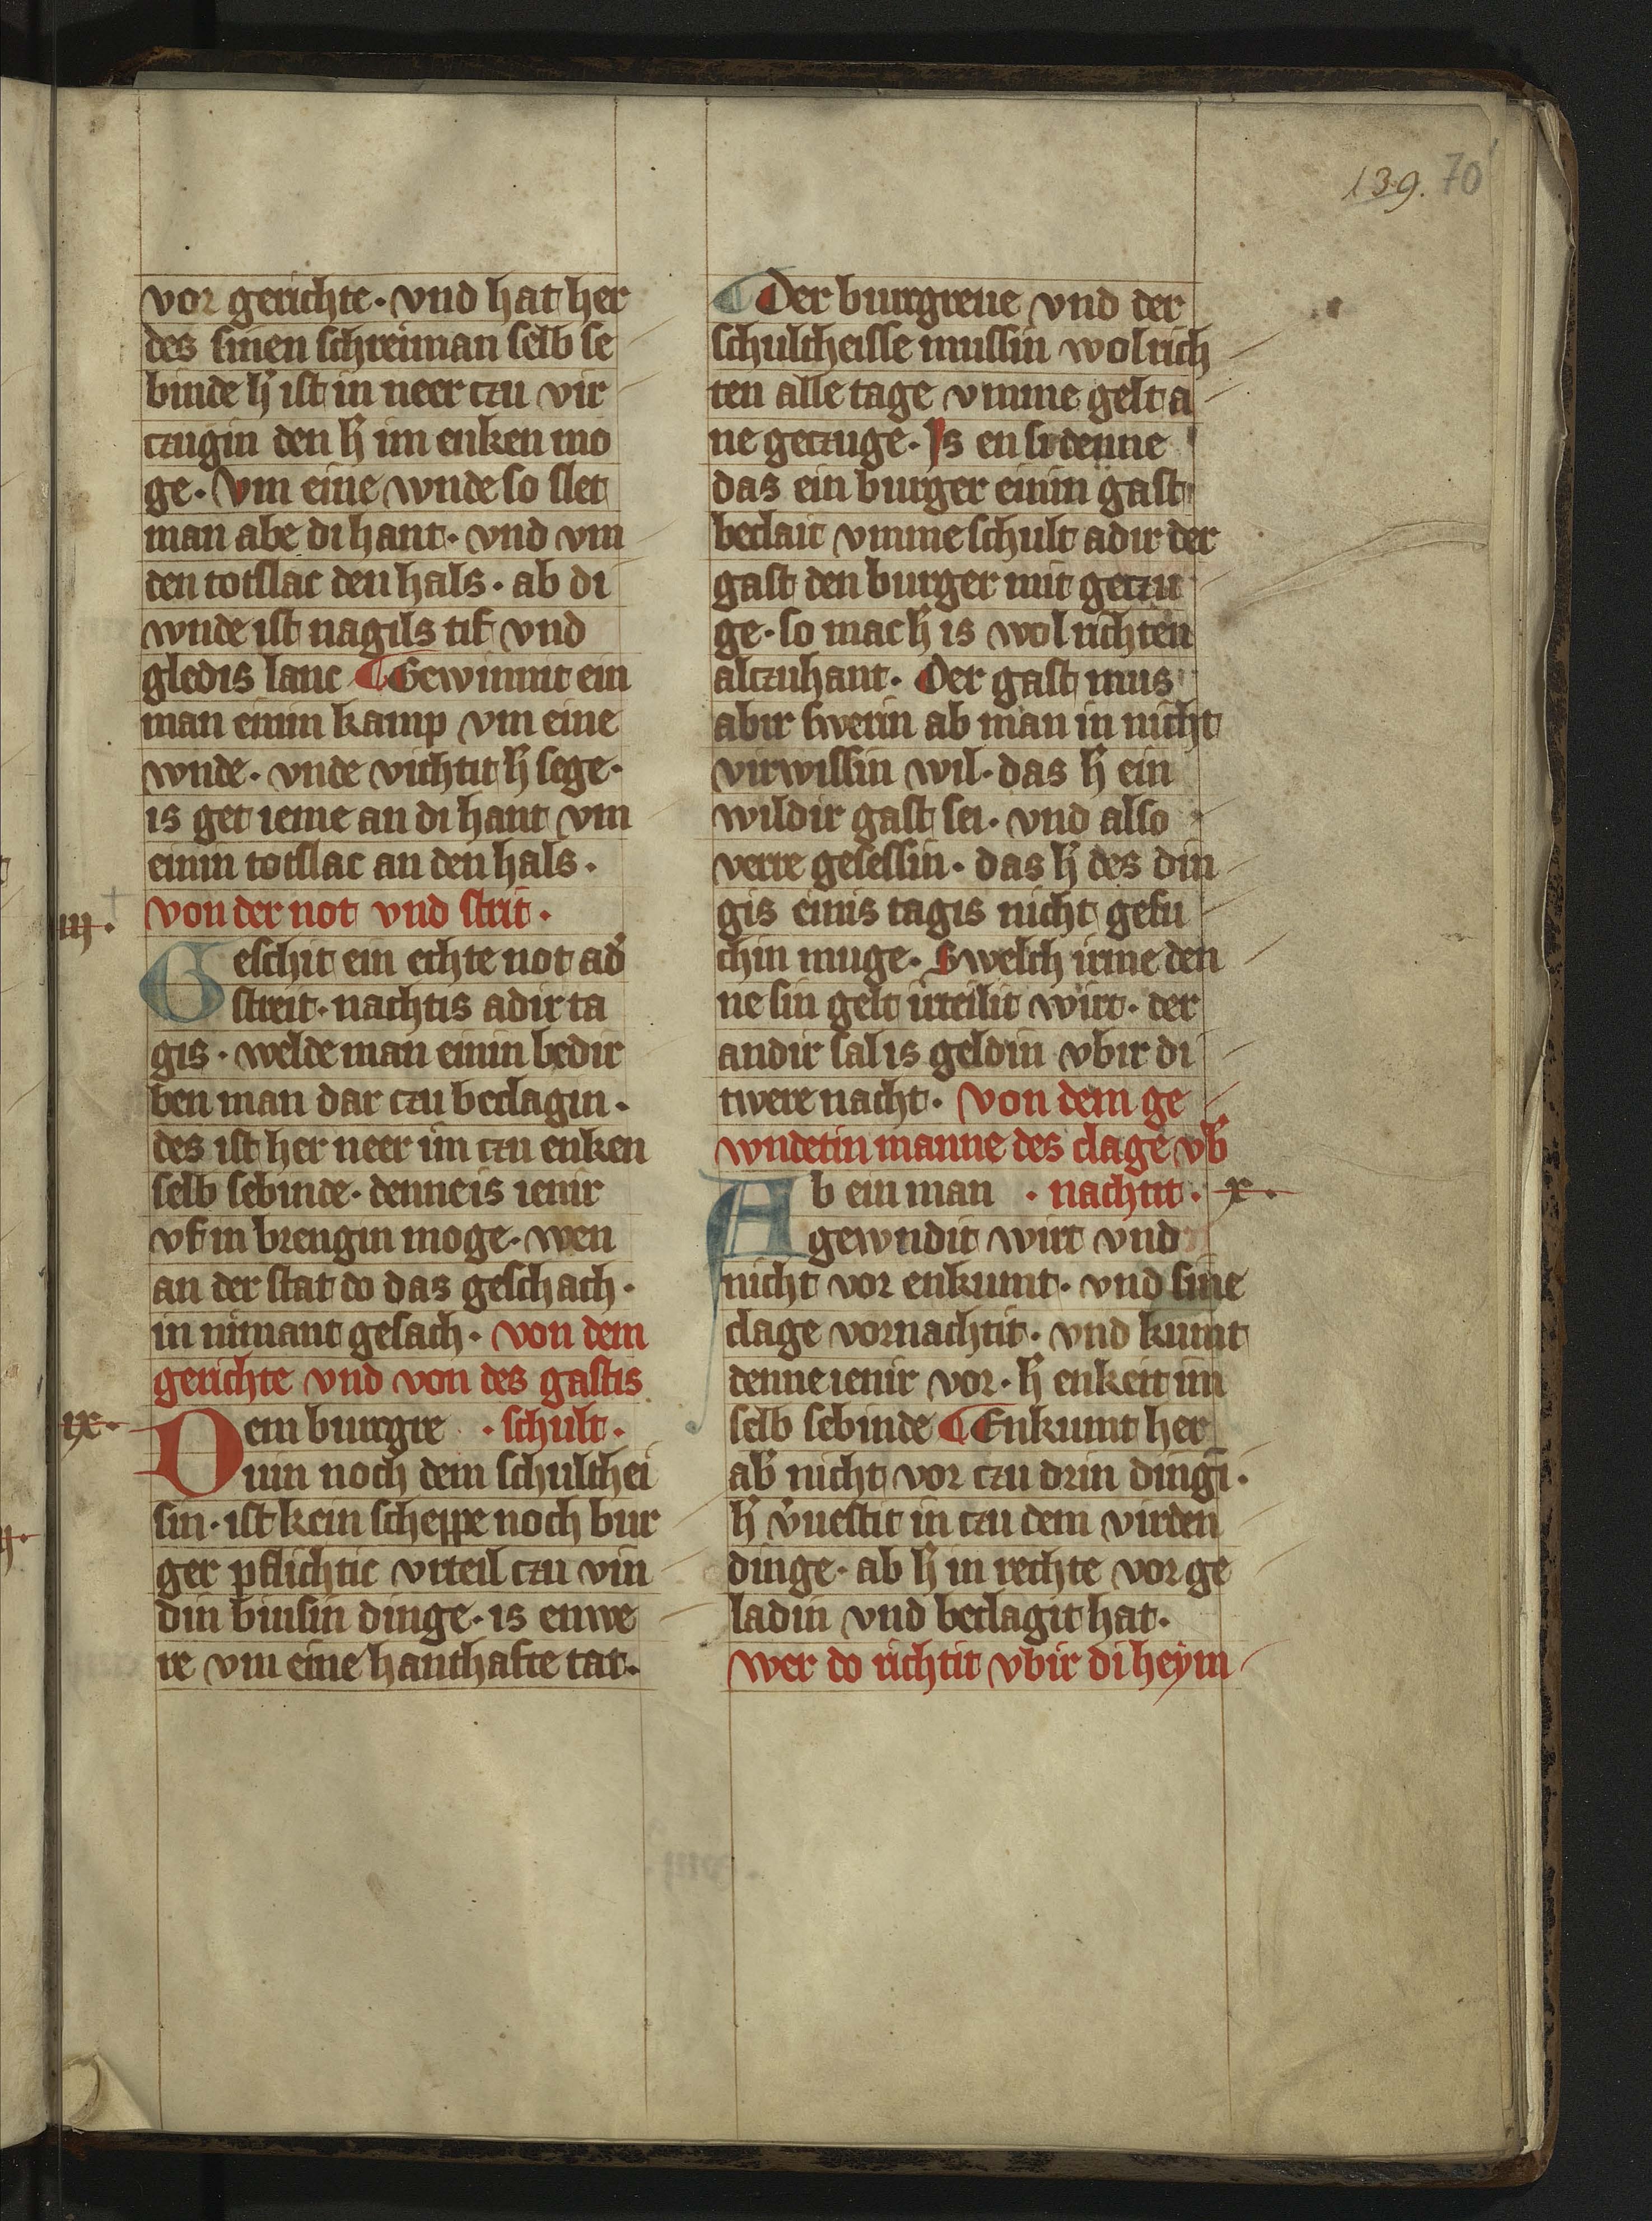 139. 70
vor gerichte · vnd hat her
des sinen schreiman selb se
binde h̄ ist in neer czu vir
czugin den h̄ im enken mo
ge · Vm eine wnde so slet
man abe di hant · vnd vm
den totslac den hals · ab di
wnde ist nagils tif vnd
gledis lanc ¶ Gewinnit ein
man einin kamp vm eine
wnde · vnde vichtit h̄ sege ·
is get ieme an di hant vm
einin totslac an den hals ·
von der not vnd strit ·
Geschit ein echte not ad̄
streit · nachtis adir ta
gis · welde man einin bedir
ben man dar czu beclagin ·
des ist her neer im czu enken
selb sebinde · denne is ienir
vf in brengin moge · wen
an der stat do das geschach ·
in nimant gesach · von dem
gerichte vnd von des gastis
ix · Dem burgre · schult ·
uin noch dem schulthei
sin · ist kein scheppe noch bur
ger pflichtic vrteil czu vin
din binsin dinge · is enwe
re vm eine hanthafte tat ·
¶ Der burgreue vnd der
schultheisse mussin wol rich
ten alle tage vmme gelt a
ne geczuge · Is en si denne
das ein burger einin gast
beclait vmme schult adir der
gast den burger mit geczu
ge · so mac h̄ is wol richten
alczuhant · Der gast mus
abir swerin ab man in nicht
virwissin wil · das h̄ ein
wildir gast sei · vnd also
verre gesessin · das h̄ des din
gis einis tagis nicht gesu
chin muge · Swelch irme den
ne sin gelt irteilit wirt · der
andir sal is geldin vbir di
twere nacht · Von dem ge
wndetin manne des clage vb̄
Ab ein man · nachtit · x ·
gewndit wirt vnd
nicht vor enkumt · vnd sine
clage vornachtit · vnd kumt
denne ienir vor · h̄ enkeit im
selb sebinde ¶ Enkumt her
ab̄ nicht vor czu drin dingī ·
h̄ v̄uestit in czu dem virden
dinge · ab h̄ in rechte vor ge
ladin vnd beclagit hat ·
wer do richtit vbir di heym